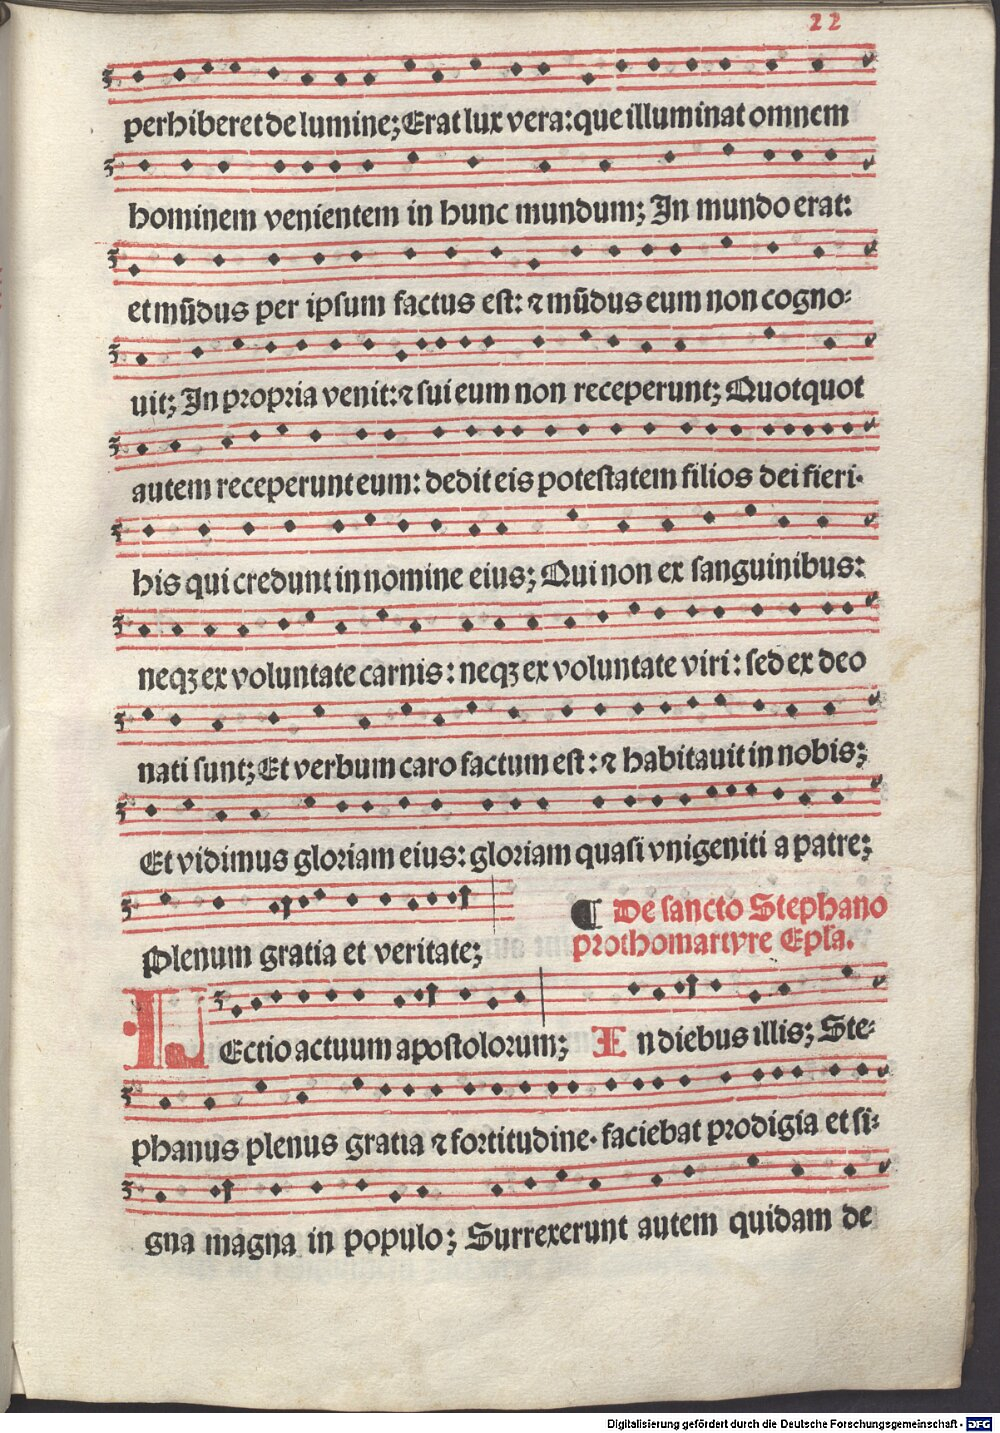 22
perhiberet de lumine; Erat lux vera: que illuminat omnem
hominem venientem in hunc mundum; In mundo erat:
et mūdus per ipsum factus est: ⁊ mūdus eum non cogno⸗
uit; In propria venit: ⁊ sui eum non receperunt; Quotquot
autem receperunt eum: dedit eis potestatem filios dei fieri·
his qui credunt in nomine eius; Qui non ex sanguinibus:
neqꝫ ex voluntate carnis: neqꝫ ex voluntate viri: sed ex deo
nati sunt; Et verbum caro factum est: ⁊ habitauit in nobis;
Et vidimus gloriam eius: gloriam quasi vnigeniti a patre;
¶ De sancto Stephano
prothomartyre Epl̄a.
Plenum gratia et veritate;
LEctio actuum apostolorum; In diebus illis; Ste⸗
phanus plenus gratia ⁊ fortitudine· faciebat prodigia et si⸗
gna magna in populo; Surrexerunt autem quidam de
Digitalisierung gefördert durch die Deutsche Forschungsgemeinschaft - DFG